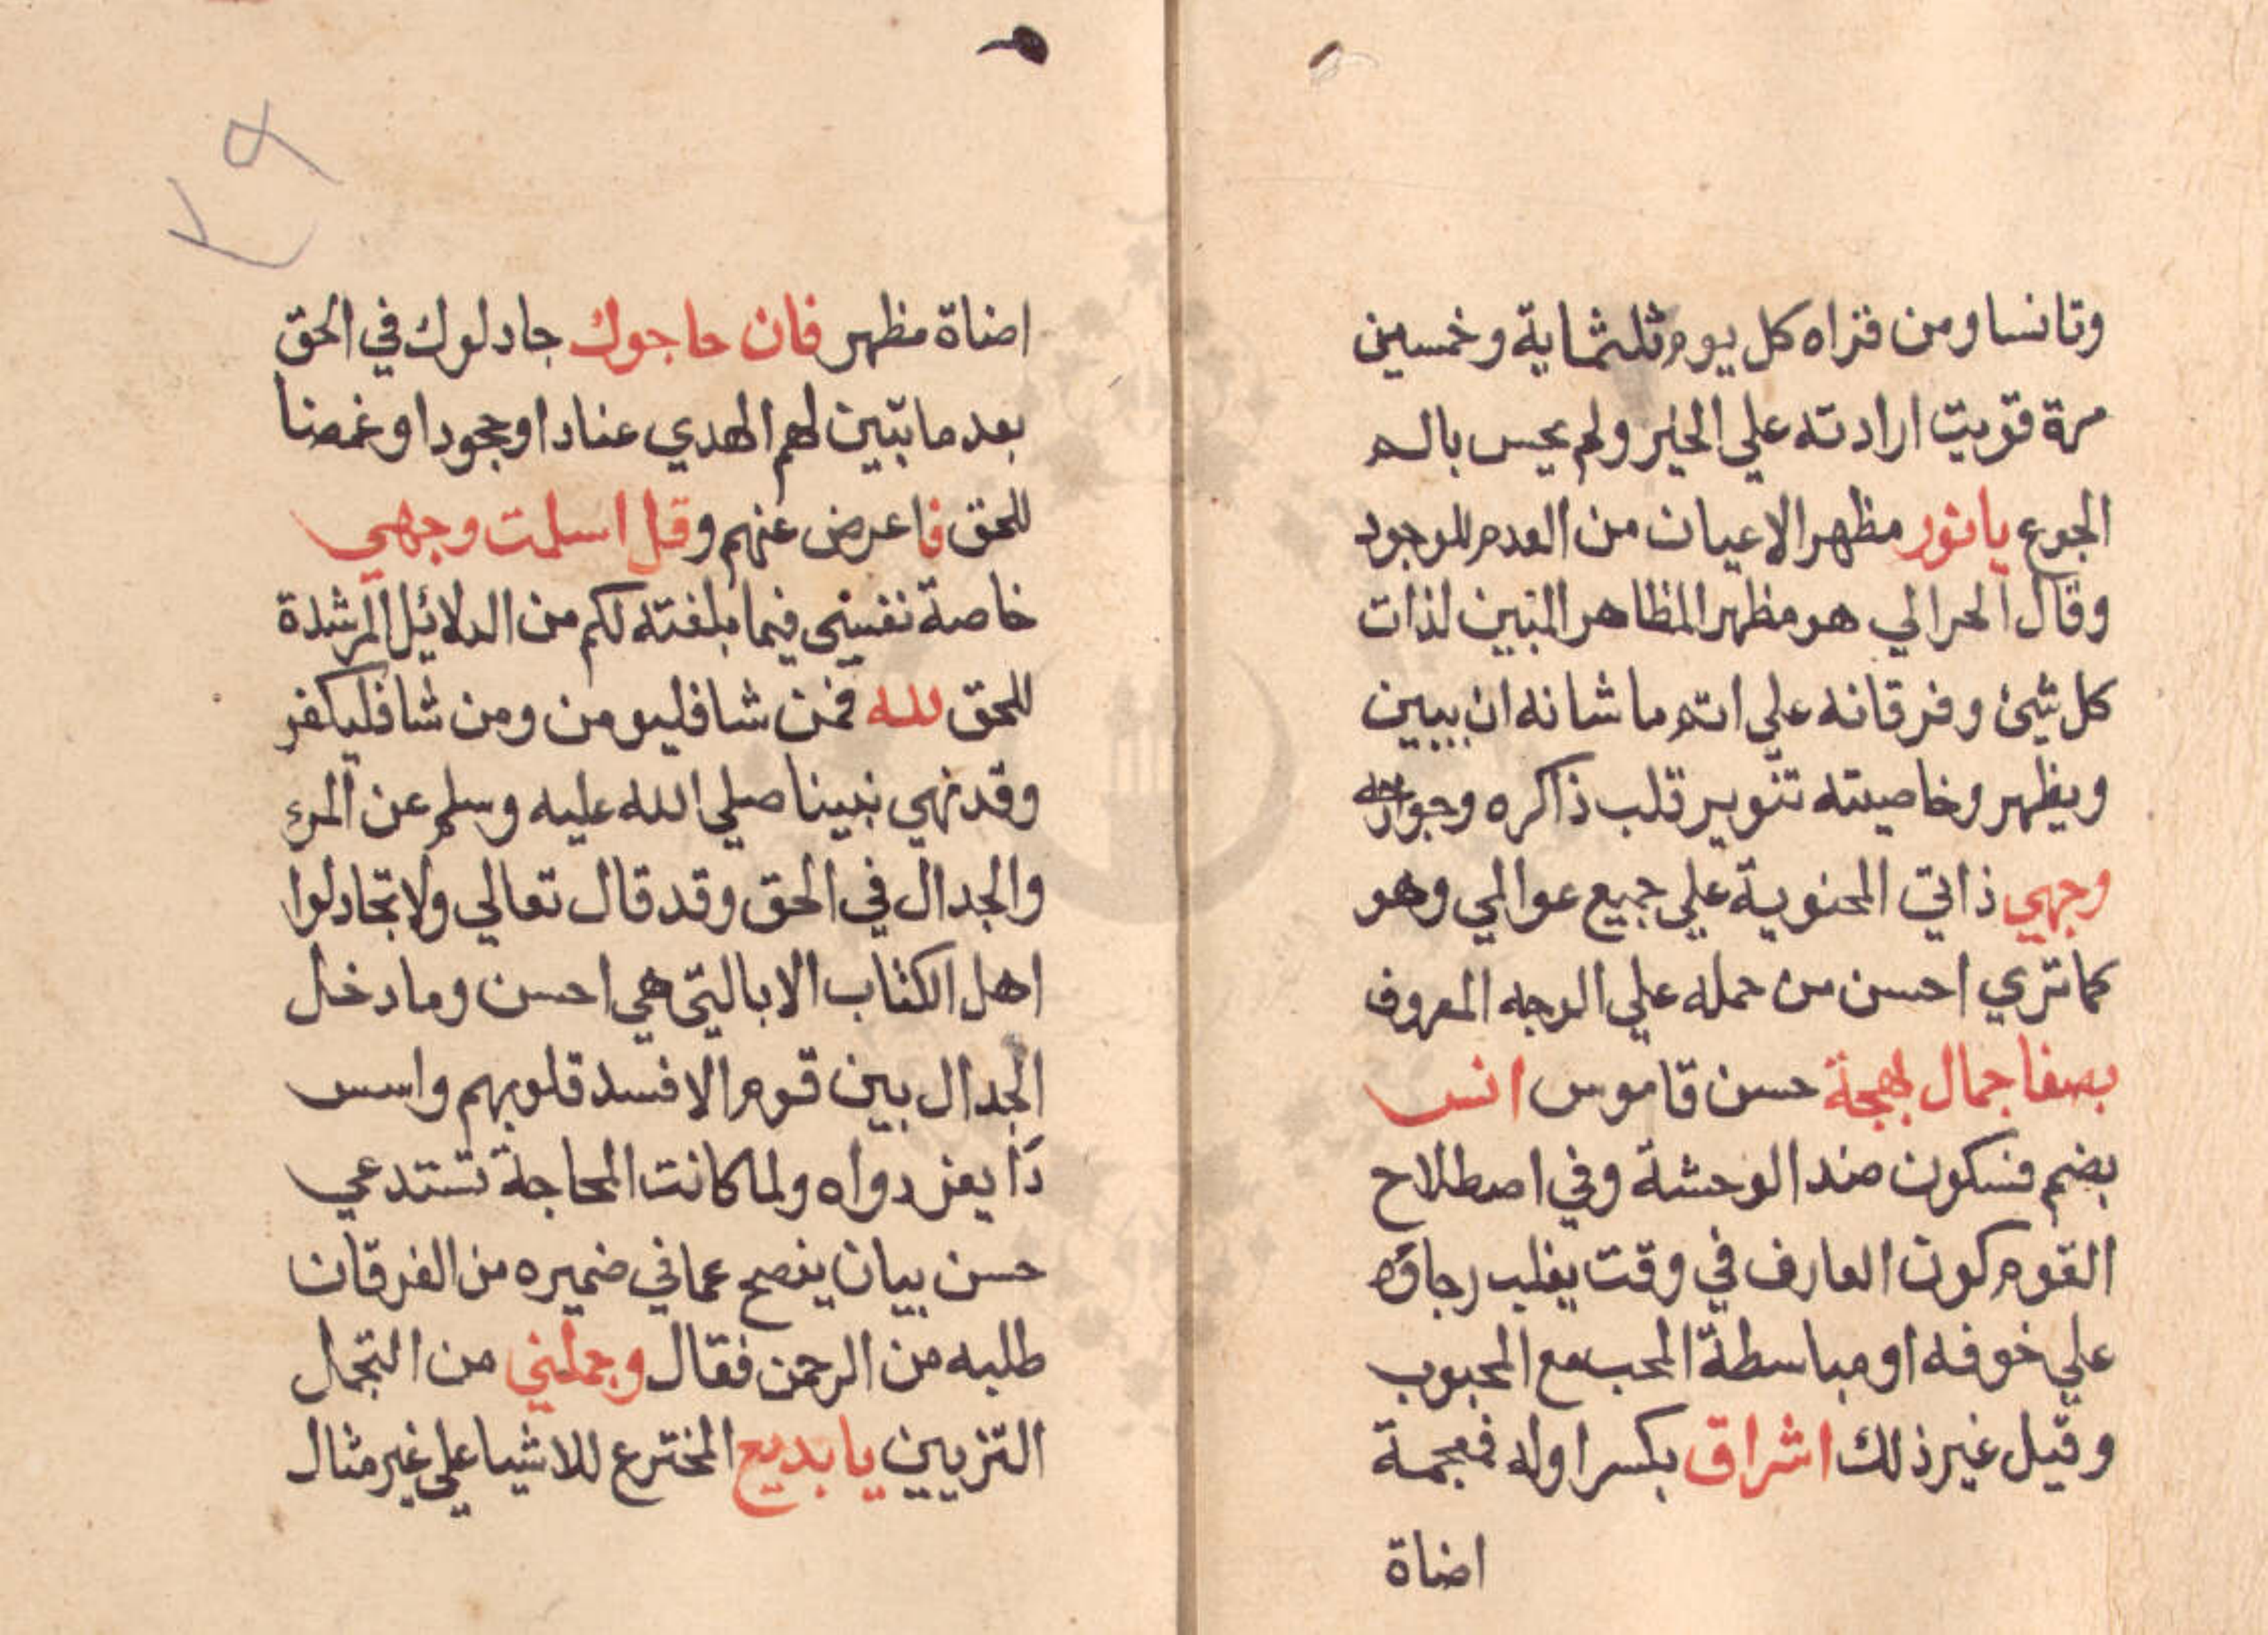 وتانسا ومن قراه كل يوم ثلثماية وخمسين
مرة قويت ارادته علي الخير ولم يحس بالم
الجوع يا نور مظهر الاعيان من العدم للوجود
وقال الحرالي هو مظهر المظاهر المبين لذات
كل شيئ وفرقانه علي اتم ما شانه ان يبين
ويظهر وخاصيته تنوير قلب ذاكره وجوارحه
وجهي ذاتي المحتوية علي جميع عوالمي وهو
كما تري احسن من حمله علي الوجه المعروف
بصفا جمال بهجة حسن قاموس انس
بضم فسكون ضد الوحشة وفي اصطلاح
القوم كون العارف في وقت يغلب رجاؤه
علي خوفه او مباسطة المحب مع المحبوب
وقيل غير ذلك اشراق بكسر اوله فمعجمة
اضاة
٢٩
اضاة مظهر فان حاجوك جادلوك في الحق
بعد ما تبين لهم الهدي عنادا وجحودا وغمضا
للحق فاعرض عنهم وقل اسلمت وجهي
خاصة نفسي فيما بلغته لكم من الدلائل المرشدة
للحق لله فمن شا فليومن ومن شا فليكفر
وقد نهي نبينا صلي الله عليه وسلم عن المرء
والجدال في الحق وقد قال تعالي ولا تجادلوا
اهل الكتاب الا بالتي هي احسن وما دخل
الجدال بين قوم الا فسد قلوبهم واسس
دا يعز دواه ولما كانت المحاجة تستدعي
حسن بيان يفصح عما في ضميره من الفرقان
طلبه من الرحمن فقال وجملني من التجمل
التزيين يا بديع المخترع للاشيا علي غير مثال